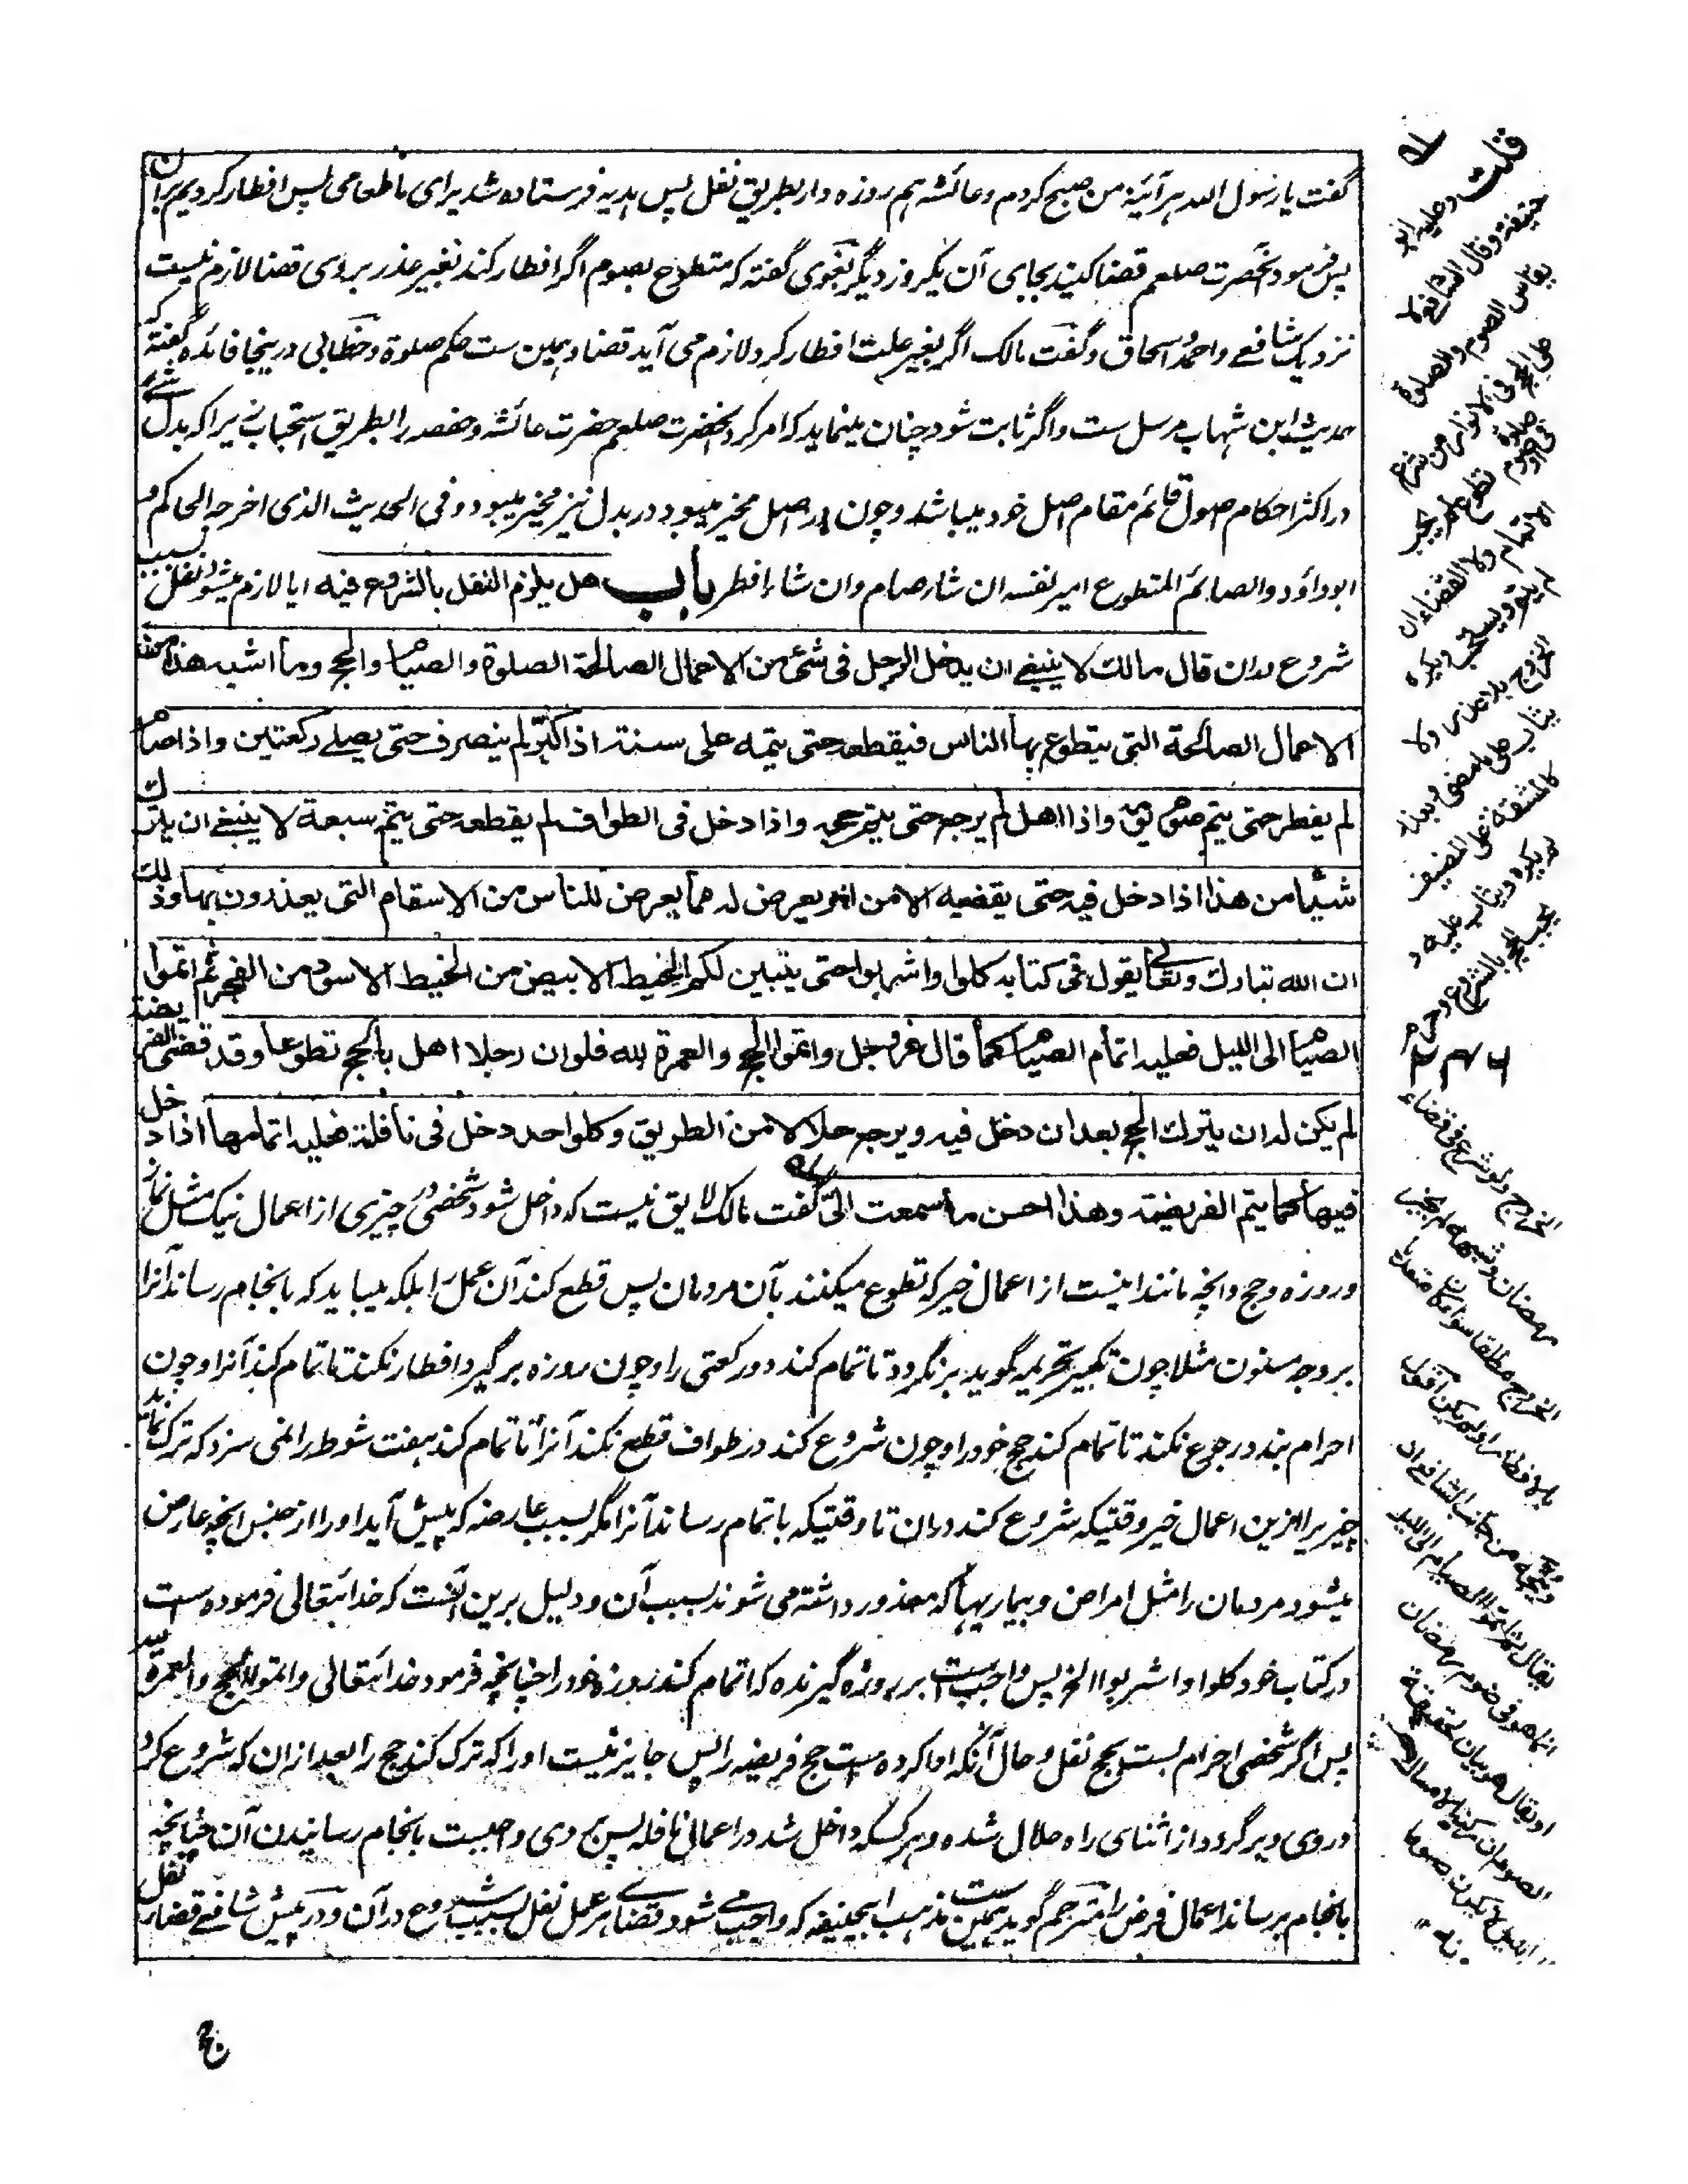 گفت یا رسول الله هر آئینه من صبح کردم و عائشه هم روزه دار بطریق نفل پس هدیه فرستاده شد برای ما طعامی پس افطار کردیم بران
پس فرمود آنحضرت صلعم قضا کنید بجای آن یکروز دیگر بغوی گفته که متطوع بصوم اگر افطار کند بغیر عذر بر وی قضا لازم نیست
نزدیک شافعے و احمد و اسحاق و گفت مالک اگر بغیر علت افطار کرد لازم می آید قضا و همین ست حکم صلوة و خطابی درینجا فائده گفته که
حدیث ابن شهاب مرسل ست و اگر ثابت شود چنان مینماید که امر کرد آنحضرت صلعم حضرت عائشه و حفصه را بطریق استحباب زیراکه بدل شئے
در اکثر احکام اصول قائم مقام اصل خود میباشد و چون در اصل مخیر میبود در بدل نیز مخیر میبود و فی الحدیث الذی اخرجه الحاکم و
ابو داؤد و الصائم المتطوع امیر نفسه ان شاء صام وان شاء افطر باب هل یلزم النفل بالشروع فیه ایا لازم میشود نفل بسبب
شروع دران قال مالك لا ینبغے ان یدخل الرجل فی شئ من الاعمال الصالحة الصلوة والصیام والحج وما اشبه هذا من
الاعمال الصالحة التی یتطوع بها الناس فیقطعه حتی یتمه علی سنته اذا کبر لم ینصرف حتی یصلے رکعتین واذا صام
لم یفطر حتی یتم صوم یومه واذا اهل لم یرجع حتی یتم حجه واذا دخل فی الطواف لم یقطعه حتی یتم سبعة لا ینبغے ان یترك
شیئا من هذا اذا دخل فیه حتی یقضیه الا من امر یعرض له مما یعرض للناس من الاسقام التی یعذرون بها وذلك
ان الله تبارك وتعالی یقول فی کتابه کلوا واشربوا حتی یتبین لکم الخیط الابیض من الخیط الاسود من الفجر ثم اتموا
الصیام الی اللیل فعلیه اتمام الصیام کما قال عز وجل واتموا الحج والعمرة لله فلو ان رجلا اهل بالحج تطوعا وقد قضی الفریضة
لم یکن له ان یترك الحج بعد ان دخل فیه ویرجع حلالا من الطریق وکل واحد دخل فی نافلة فعلیه اتمامها اذا دخل
فیها کما یتم الفریضة وهذا احسن ما سمعت الیّ گفت مالک لایق نیست که داخل شود شخصی در چیزی از اعمال نیک مثل نماز
و روزه و حج و آنچه مانند اینست از اعمال خیر که تطوع میکنند بآن مردمان پس قطع کند آن عمل را بلکه میباید که بانجام رساند آنرا
بر وجه مسنون مثلا چون تکبیر تحریمه گوید برنگردد تا تمام کند دو رکعتی را و چون روزه برگیرد افطار نکند تا تمام کند آنرا و چون
احرام بندد رجوع نکند تا تمام کند حج خود را و چون شروع کند در طواف قطع نکند آنرا تا تمام کند هفت شوط را نمی سزد که ترک نماید
چیزی را ازین اعمال خیر وقتیکه شروع کند دران تا وقتیکه باتمام رساند آنرا مگر بسبب عارضه که پیش آید او را از جنس آنچه عارض
میشود مردمان را مثل امراض و بیماریها که معذور داشته می شوند بسبب آن و دلیل برین آنست که خدا تعالی فرموده است
در کتاب خود کلوا واشربوا الخ پس واجب ست بر روزه گیرنده که اتمام کند روزه خود را چنانچه فرمود خدا تعالی واتموا الحج والعمرة لله
پس اگر شخصی احرام بست بحج نفل و حال آنکه ادا کرده ست حج فریضه را پس جایز نیست او را که ترک کند حج را بعد ازان که شروع کرد
در وی و برگردد از اثنای راه حلال شده و هر کسیکه داخل شد در اعمال نافله پس بر وی واجبست بانجام رسانیدن آن چنانچه
بانجام رساند اعمال فرض را مترجم گوید همین ست مذهب ابیحنیفه که واجب می شود قضاے هر عمل نفل بسبب شروع در آن و در پیش شافعے قضاء نفل
قلت وعلیه ابو
حنیفة وقال الشافعی
یقاس الصوم والصلوة
علی الحج فی الانوار من شرع
فی صلوة او صوم تطوعا لم یجب
الاتمام ولا القضاء ان
لم یتم ویستحب ویکره
الخروج بلا عذر ولا
یثاب علی ما مضی وبعذر
کالمشقة علی المضیف
لم یکره ویثاب علیه و
یجب الحج بالشروع وحرم
الخروج ولو شرع فی قضاء
رمضان وشبهه لم یجز
الخروج مطلقا سواء کان متعدیا
بالافطار اولم یکن اقول
وتوجیهه من جانب الشافعی ان
یقال ثم اتموا الصیام الی اللیل
انما هو فی صوم رمضان
او یقال هو بیان لحقیقة
الصوم
ج